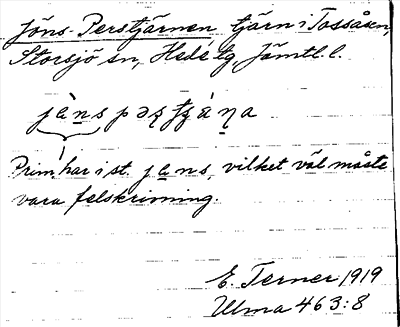 Jöns-Perstjärnen tjärn i Tossåsen,
Storsjö sn, Hede tg, Jämtl. l.
Prim. har i st. jans, vilket väl måste
vara felskrivning.
E. Terner 1919
Ulma 463:8